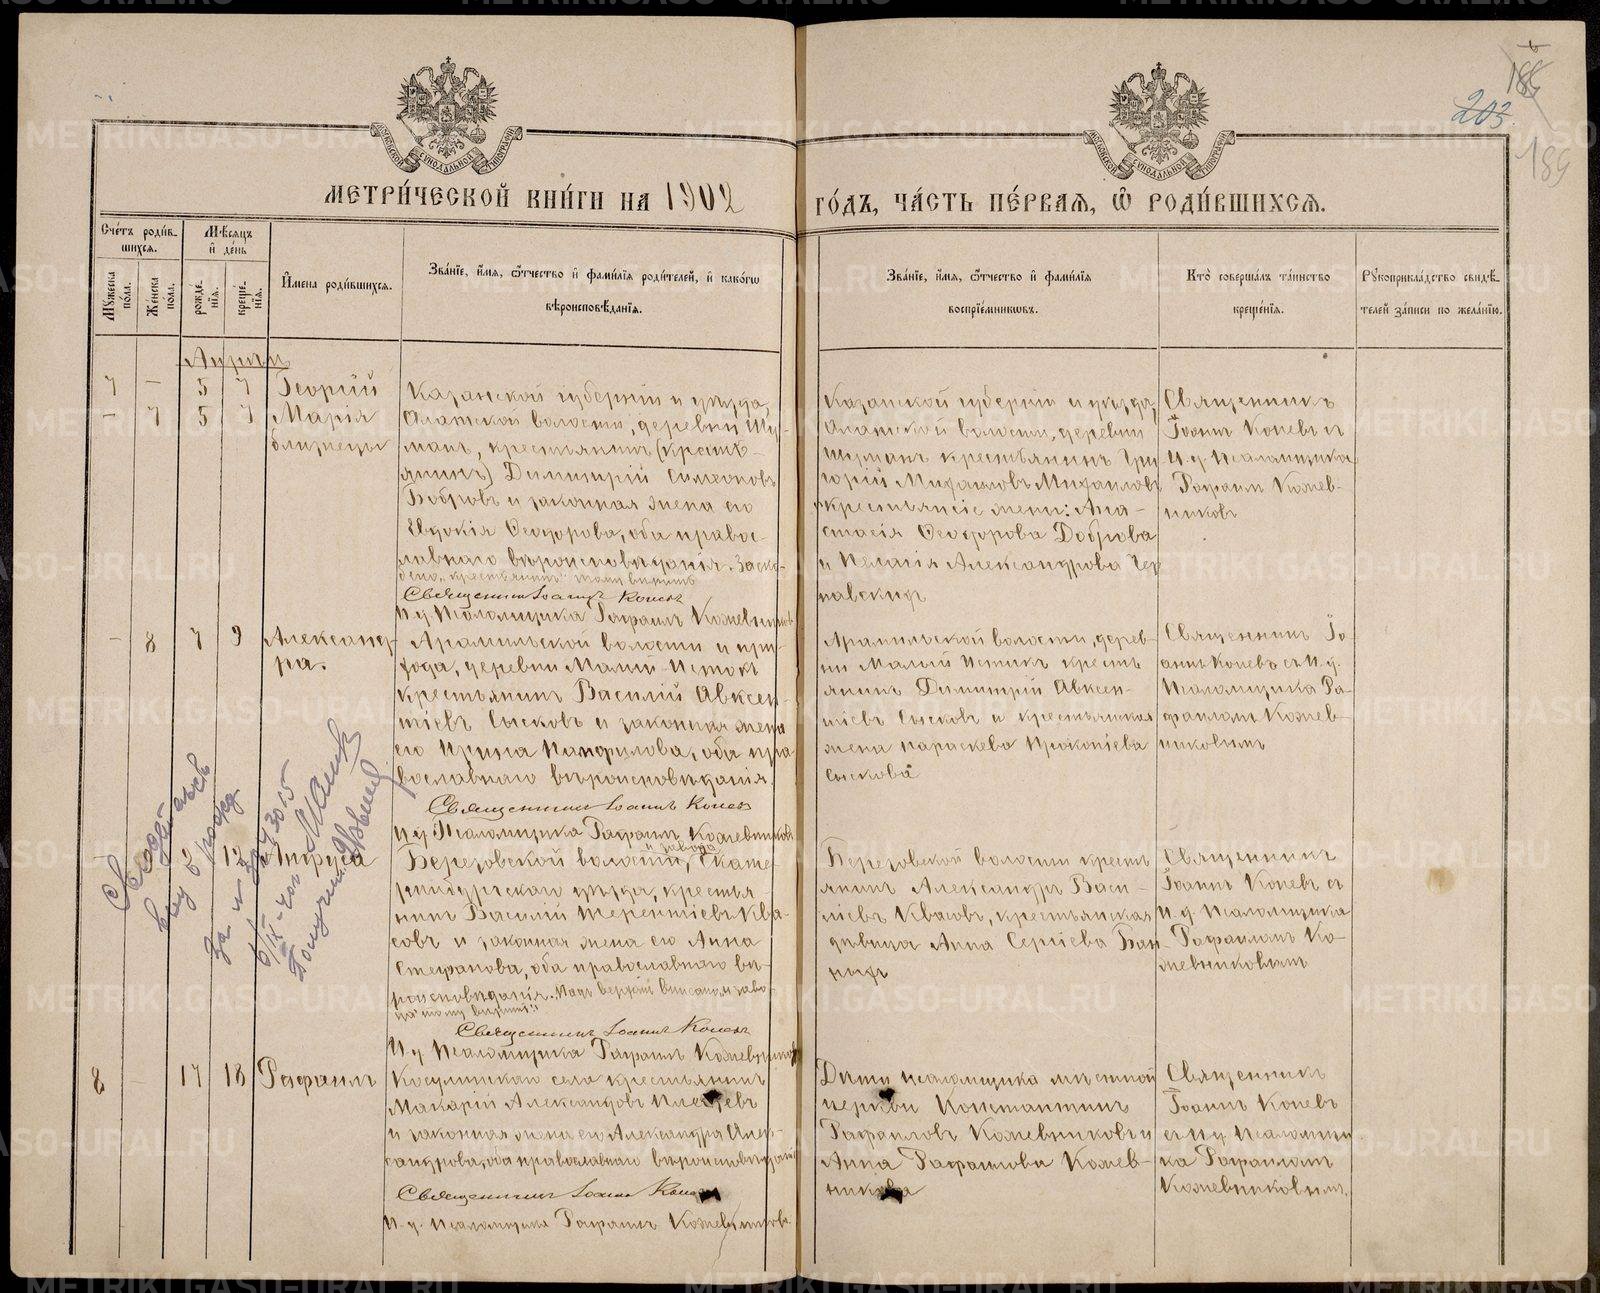 203.
189
МОСКОВСКОЙ СѴНОДАЛЬНОЙ ТИПОГРАФІИ
МОСКОВСКОЙ СѴНОДАЛЬНОЙ ТИПОГРАФІИ
МЕТРИ́ЧЕСКОЙ КНИ́ГИ НА 1902 ГО́ДЪ, ЧА́СТЬ ПЕ́РВАѦ, Ѡ҆ РОДИ́ВШИХСѦ.
Сче́тъ роди́в-
шихсѧ.
Мѣ́сѧцъ
и҆ де́нь
Мꙋ́жеска
по́ла.
Же́нска
по́ла.
рожде́-
нїѧ.
креще́-
нїѧ.
И҆мена̀ роди́вшихсѧ.
Зва́нїе, и҆́мѧ, ѻ҆́тчество и҆ фами́лїѧ роди́телей, и҆ како́гѡ
вѣроисповѣ́данїѧ.
Зва́нїе, и҆́мѧ, ѻ҆́тчество и҆ фами́лїѧ
воспрїе́мникѡвъ.
Кто̀ соверша́лъ та́инство
креще́нїѧ.
Рꙋкоприкла́дство свидѣ́-
телей за́писи по жела́нїю.
Апрѣль
7 — 5 7 Георгій
— 7 5 7 Марія
близнецы
Казанской губерніи и уѣзда,
Алатской волости, деревни Шу-
манъ, крестьянинъ (кресть-
янинъ) Димитрій Симеоновъ
Бобровъ и законная жена его
Евдокія Ѳеодорова, оба правос-
лавнаго вѣроисповѣданія. Заско-
бено „крестьянинъ" тому вѣрить
Священникъ Іоаннъ Коневъ
И. д. Псаломщика Рафаилъ Кожевниковъ
Казанской губерніи и уѣзда,
Алатской волости, деревни
Шуманъ крестьянинъ Гри
горій Михаиловъ Михаиловъ
крестьянскіе жены: Ана-
стасія Ѳеодорова Доброва
и Пелагія Александрова Чер
навскихъ
Священникъ
Іоаннъ Коневъ съ
И. д. Псаломщика
Рафаилъ Кожев-
никовъ
— 8 7 9 Александ-
ра.
Арамильской волости и при-
хода, деревни Малый-Истокъ
крестьянинъ Василій Авксен-
тіевъ Сысковъ и законная жена
его Ирина Панфилова, оба пра-
вославнаго вѣроисповѣданія.
Священникъ Іоаннъ Коневъ
И. д. Псаломщика Рафаилъ Кожевниковъ
Арамильской волости, дерев-
ни Малый Истокъ кресть
янинъ Димитрій Авксен-
тіевъ Сысковъ и крестьянская
жена Параскева Прокопіева
Сыскова
Священникъ Іо-
аннъ Коневъ съ И. д.
Псаломщика Ра-
фаиломъ Кожев-
никовымъ
Анфуса
Березовской волости, Екате-
и завода
ринбургскаго уѣзда, крестья-
нинъ Василій Терентіевъ Ква-
совъ и законная жена его Анна
Стефанова, оба православнаго вѣ-
роисповѣданія. Надъ верхній вписано „и заво-
да" тому вѣрить
Священникъ Іоаннъ Коневъ
И. д. Псаломщика Рафаилъ Кожевниковъ
Березовской волости кресть
янинъ Александръ Васи-
ліевъ Квасовъ, крестьянская
дѣвица Анна Сергіева Бан
ныхъ
Священникъ
Іоаннъ Коневъ съ
И. д. Псаломщика
Рафаиломъ Ко-
жевниковымъ
8 — 17 18 Рафаилъ
Косулинскаго села крестьянинъ
Макарій Александровъ
и законная жена его Александра Алек-
сандрова, оба православнаго вѣроисповѣданія
Священникъ Іоаннъ Коневъ
И. д. Псаломщика Рафаилъ Кожевниковъ
Дѣти псаломщика мѣстной
церкви Константинъ
Рафаиловъ Кожевниковъ и
Анна Рафаилова Кожев-
никова
Священникъ
Іоаннъ Коневъ
съ И. д. Псаломщи
ка Рафаиломъ
Кожевниковымъ.
METRIKI.GASO-URAL.RU